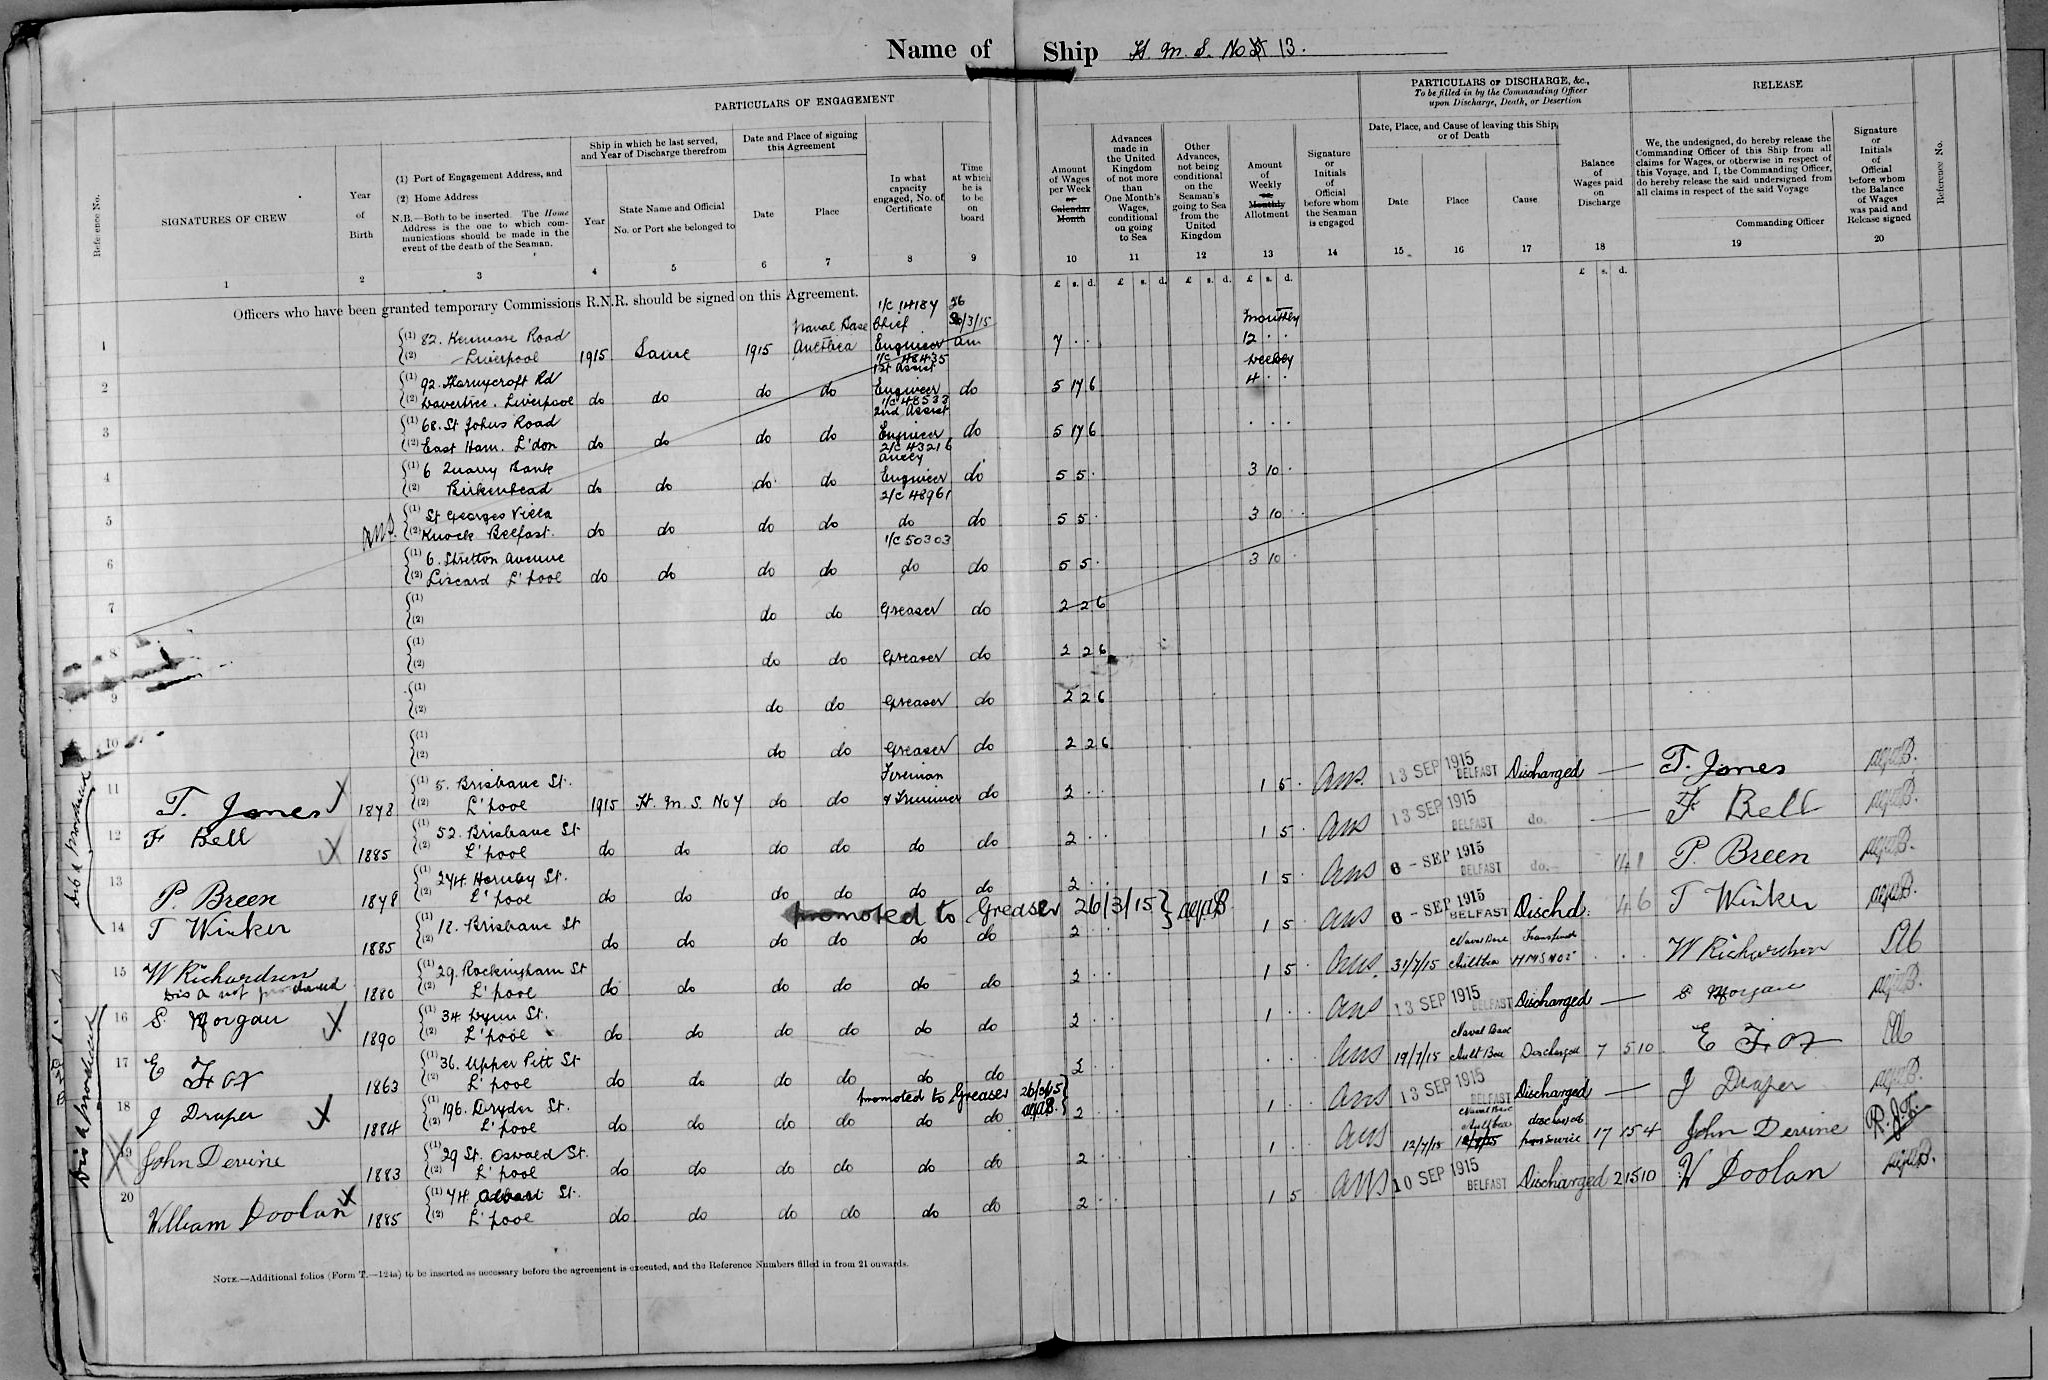 Name of Ship H. M. S. No 13.
PARTICULARS OF ENGAGEMENT
PARTICULARS OF DISCHARGE, &c.,
To be filled in by the Commanding Officer
upon Discharge, Death, or Desertion
RELEASE
Reference No.
SIGNATURES OF CREW
1
Year
of
Birth
2
(1) Port of Engagement Address, and
(2) Home Address
N.B.—Both to be inserted. The Home
Address is the one to which com-
munications should be made in the
event of the death of the Seaman.
3
Ship in which he last served,
and Year of Discharge therefrom
Year
4
State Name and Official
No. or Port she belonged to
5
Date and Place of signing
this Agreement
Date
6
Place
7
In what
capacity
engaged, No. of
Certificate
8
Time
at which
he is
to be
on
board
9
Amount
of Wages
per Week
or
Calendar
Month
10
Advances
made in
the United
Kingdom
of not more
than
One Month's
Wages,
conditional
on going
to Sea
11
Other
Advances,
not being
conditional
on the
Seaman's
going to Sea
from the
United
Kingdom
12
Amount
of
Weekly
or
Monthly
Allotment
13
Signature
or
Initials
of
Official
before whom
the Seaman
is engaged
14
Date, Place, and Cause of leaving this Ship,
or of Death
Date
15
Place
16
Cause
17
Balance
of
Wages paid
on
Discharge
18
We, the undesigned, do hereby release the
Commanding Officer of this Ship from all
claims for Wages, or otherwise in respect of
this Voyage, and I, the Commanding Officer,
do hereby release the said undersigned from
all claims in respect of the said Voyage
Commanding Officer
19
Signature
or
Initials
of
Official
before whom
the Balance
of Wages
was paid and
Release signed
20
Reference No.
£ s. d. £ s. d. £ s. d. £ s. d. £ s. d.
Officers who have been granted temporary Commissions R.N.R. should be signed on this Agreement.
1 (1) 82. Kenmare Road
(2) Liverpool 1915 Same 1915 Naval Base 1/c 14184 Chief Engineer 26/3/15 am 7 . . monthly 12 . .
2 (1) 92. Thornycroft Rd
(2) Wavertree. Liverpool do do do do 1/c 48435 1st Assist Engineer do 5 17 6 weekly 4 . .
3 (1) 68. St Johns Road
(2) East Ham. L'don do do do do 1/c 48533 2nd Assist Engineer do 5 17 6 . . .
4 (1) 6 Quarry Bank
(2) Birkenhead do do do do 2/c 43216 Engineer do 5 5 . 3 10 .
5 (1) St Georges Villa
(2) Knock Belfast. do do do do 2/c 48961 do do 5 5 . 3 10 .
6 (1) 6. Stretton Avenue
(2) Liscard L'pool do do do do 1/c 50303 do do 5 5 . 3 10 .
7 (1)
(2) do do Greaser do 2 2 6
8 (1)
(2) do do Greaser do 2 2 6
9 (1)
(2) do do Greaser do 2 2 6
10 (1)
(2) do do Greaser do 2 2 6
11 T. Jones 1878 (1) 5. Brisbane St.
(2) L'pool 1915 H. M. S. No 7 do do Fireman & Trimmer do 2 . . 1 5 . 13 SEP 1915 BELFAST Discharged — T. Jones
12 F Bell 1885 (1) 52. Brisbane St
(2) L'pool do do do do do do 2 . . 1 5 . 13 SEP 1915 BELFAST do. — F Bell
13 P. Breen (1) 274. Hornby St.
(2) L'pool do do do do do do 2 . . 1 5 . 6 - SEP 1915 BELFAST do. P. Breen
promoted to Greaser 26/3/15
14 T Winker 1885 (1) 12. Brisbane St
(2) do do do do do do 2 . . 1 5 6 - SEP 1915 BELFAST Dischd. T Winker
15 W Richardson 1880 (1) 29. Rockingham St
(2) L'pool do do do do do do 2 . . 1 5 31/7/15 Naval Base Aultbea Transferred W Richardson
Dis A not produced
16 S. Morgan 1890 (1) 34 Wynn St.
(2) L'pool do do do do do do 2 . . 1 . . 13 SEP 1915 BELFAST Discharged — S Morgan
17 E Fox 1863 (1) 36. Upper Pitt St
(2) L'pool do do do do do do 2 . . . 19/7/15 Naval Base Ault Bea Discharged 7 5 10 E Fox
promoted to Greaser 26/3/15
18 J Draper 1884 (1) 196. Dryden St.
(2) L'pool do do do do do do 2 . . 1 . . 13 SEP 1915 BELFAST Discharged — J Draper
19 John Devine 1883 (1) 29 St. Oswald St.
(2) L'pool do do do do do do 2 . . 1 . . 12/7/15 Naval Base Aultbea discharged from service 17 15 4 John Devine
20 William Doolan 1885 (1) 74. St.
(2) L'pool do do do do do do 2 . . 1 5 10 SEP 1915 BELFAST Discharged 2 15 10 W Doolan
Dis A produced
Dis A produced
NOTE.—Additional folios (Form T.—124a) to be inserted as necessary before the agreement is executed, and the Reference Numbers filled in from 21 onwards.